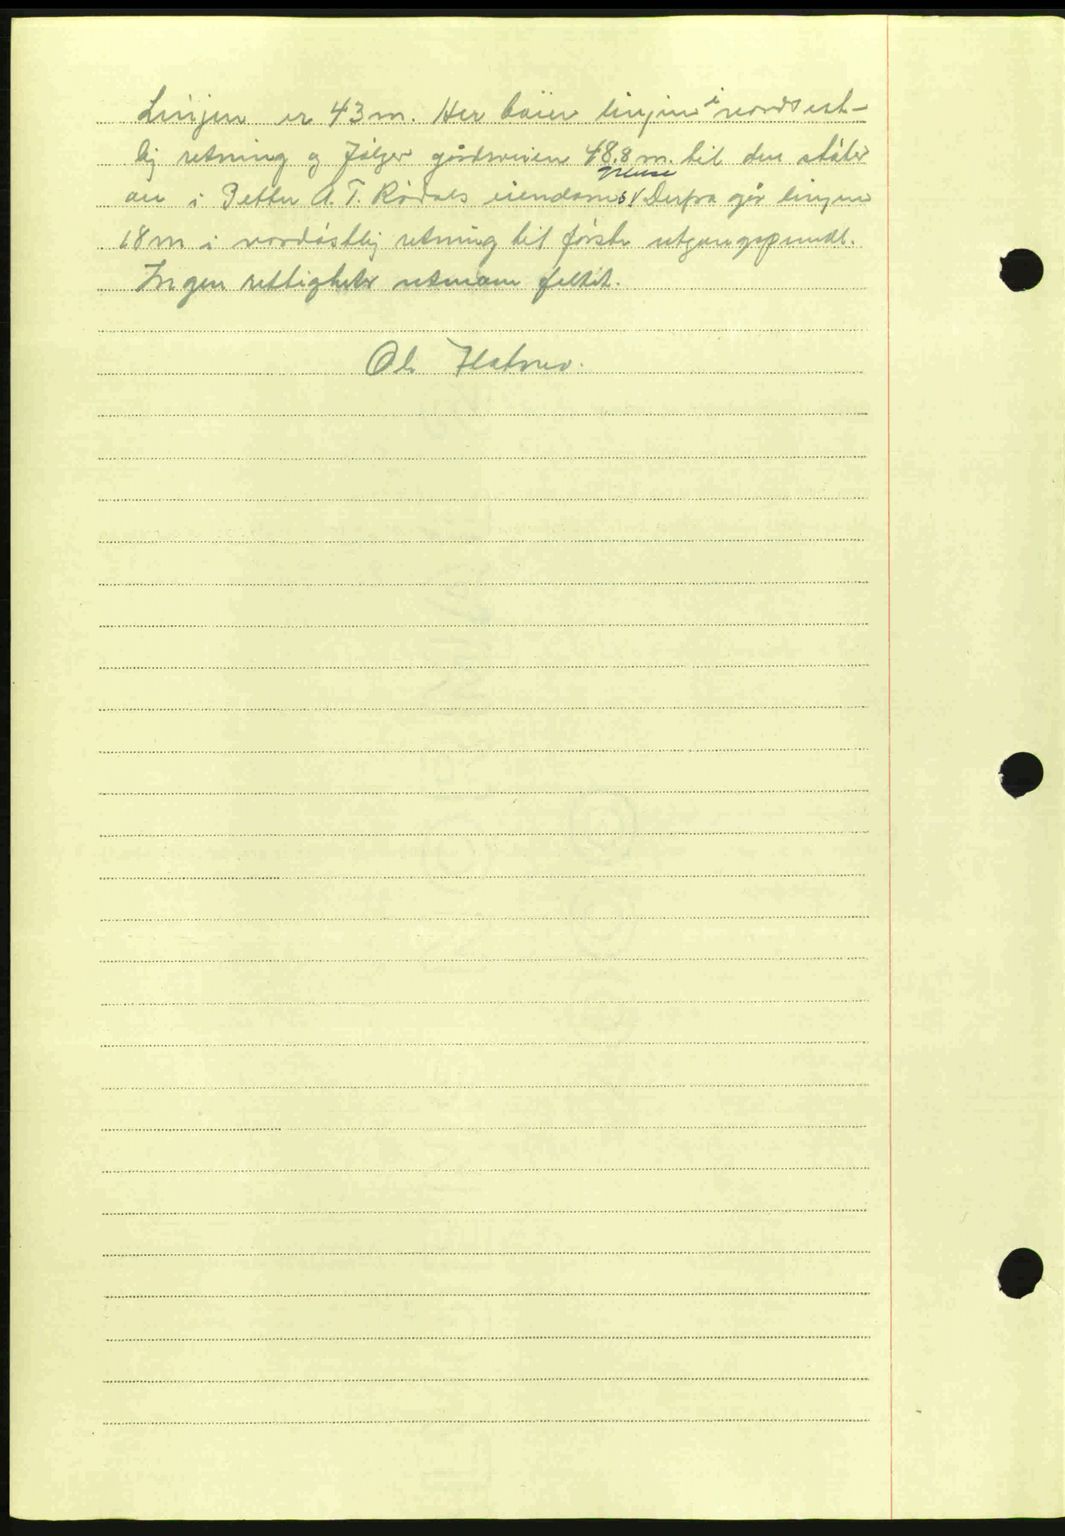 Linjen er 43 m. Her bøier linjen i nordvest-
lig retning og følger gårdsveien 48.8 m. til den støter
an i Petter A. T. Rødals eiendoms grense Derfra går linjen
18 m i nordøstlig retning til første utgangspunkt.
Ingen rettigheter utenom feltet.